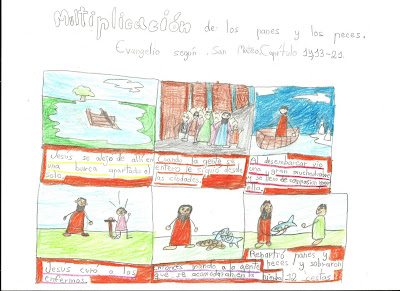 Multiplicación de los panes y los peces.
Evangelio según San Mateo, Capitulo 19,13-21.
Jesus se alejo de alli en
una barca apartado el
solo.
Cuando la gente se
entero le siguio desde
las ciudades
Al desembarcar vio
una gran muchedumbre
y se lleno de compasion por
ella.
Jesus curo a los
enfermos.
Entonces mando a la gente
que se
Repartió panes y
peces y sobraron
12 cestas